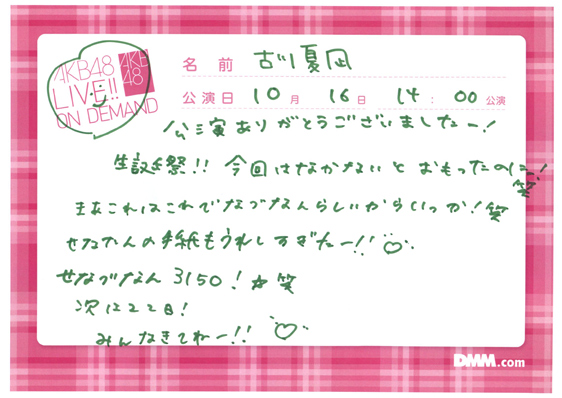 AKB48
LIVE!!
ON DEMAND
AKB
48
名前 古川夏凪
公演日 10月 16日 14:00公演
公演ありがとうございましたー!
生誕祭!! 今回はなかないとおもったのに!笑
まあこれはこれでなづなんらしいからいっか!笑
せなたんの手紙もうれしすぎたー!!
せなづなん 3150!☆笑
次は22日!
みんなきてねー!!
DMM.com